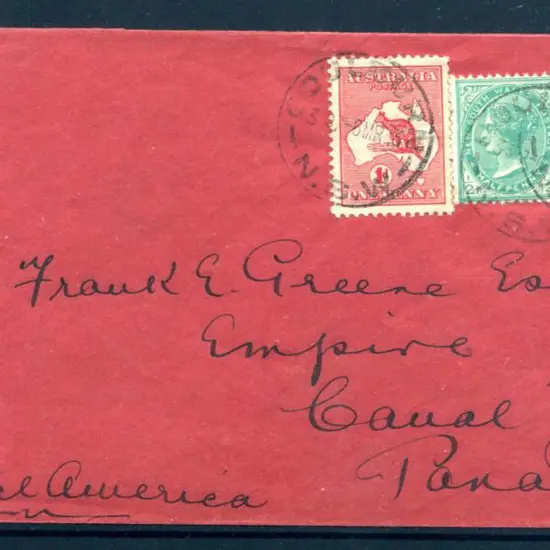 AUSTRALIA
POSTAGE
1d
ONE PENNY
SOUTH WA
HALF PE
N.S.W
Frank E. Greene Es
Empire
Canal
Pana
al America